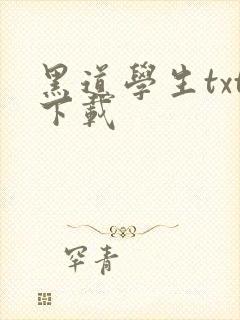 黑道學生txt
下載
罕青